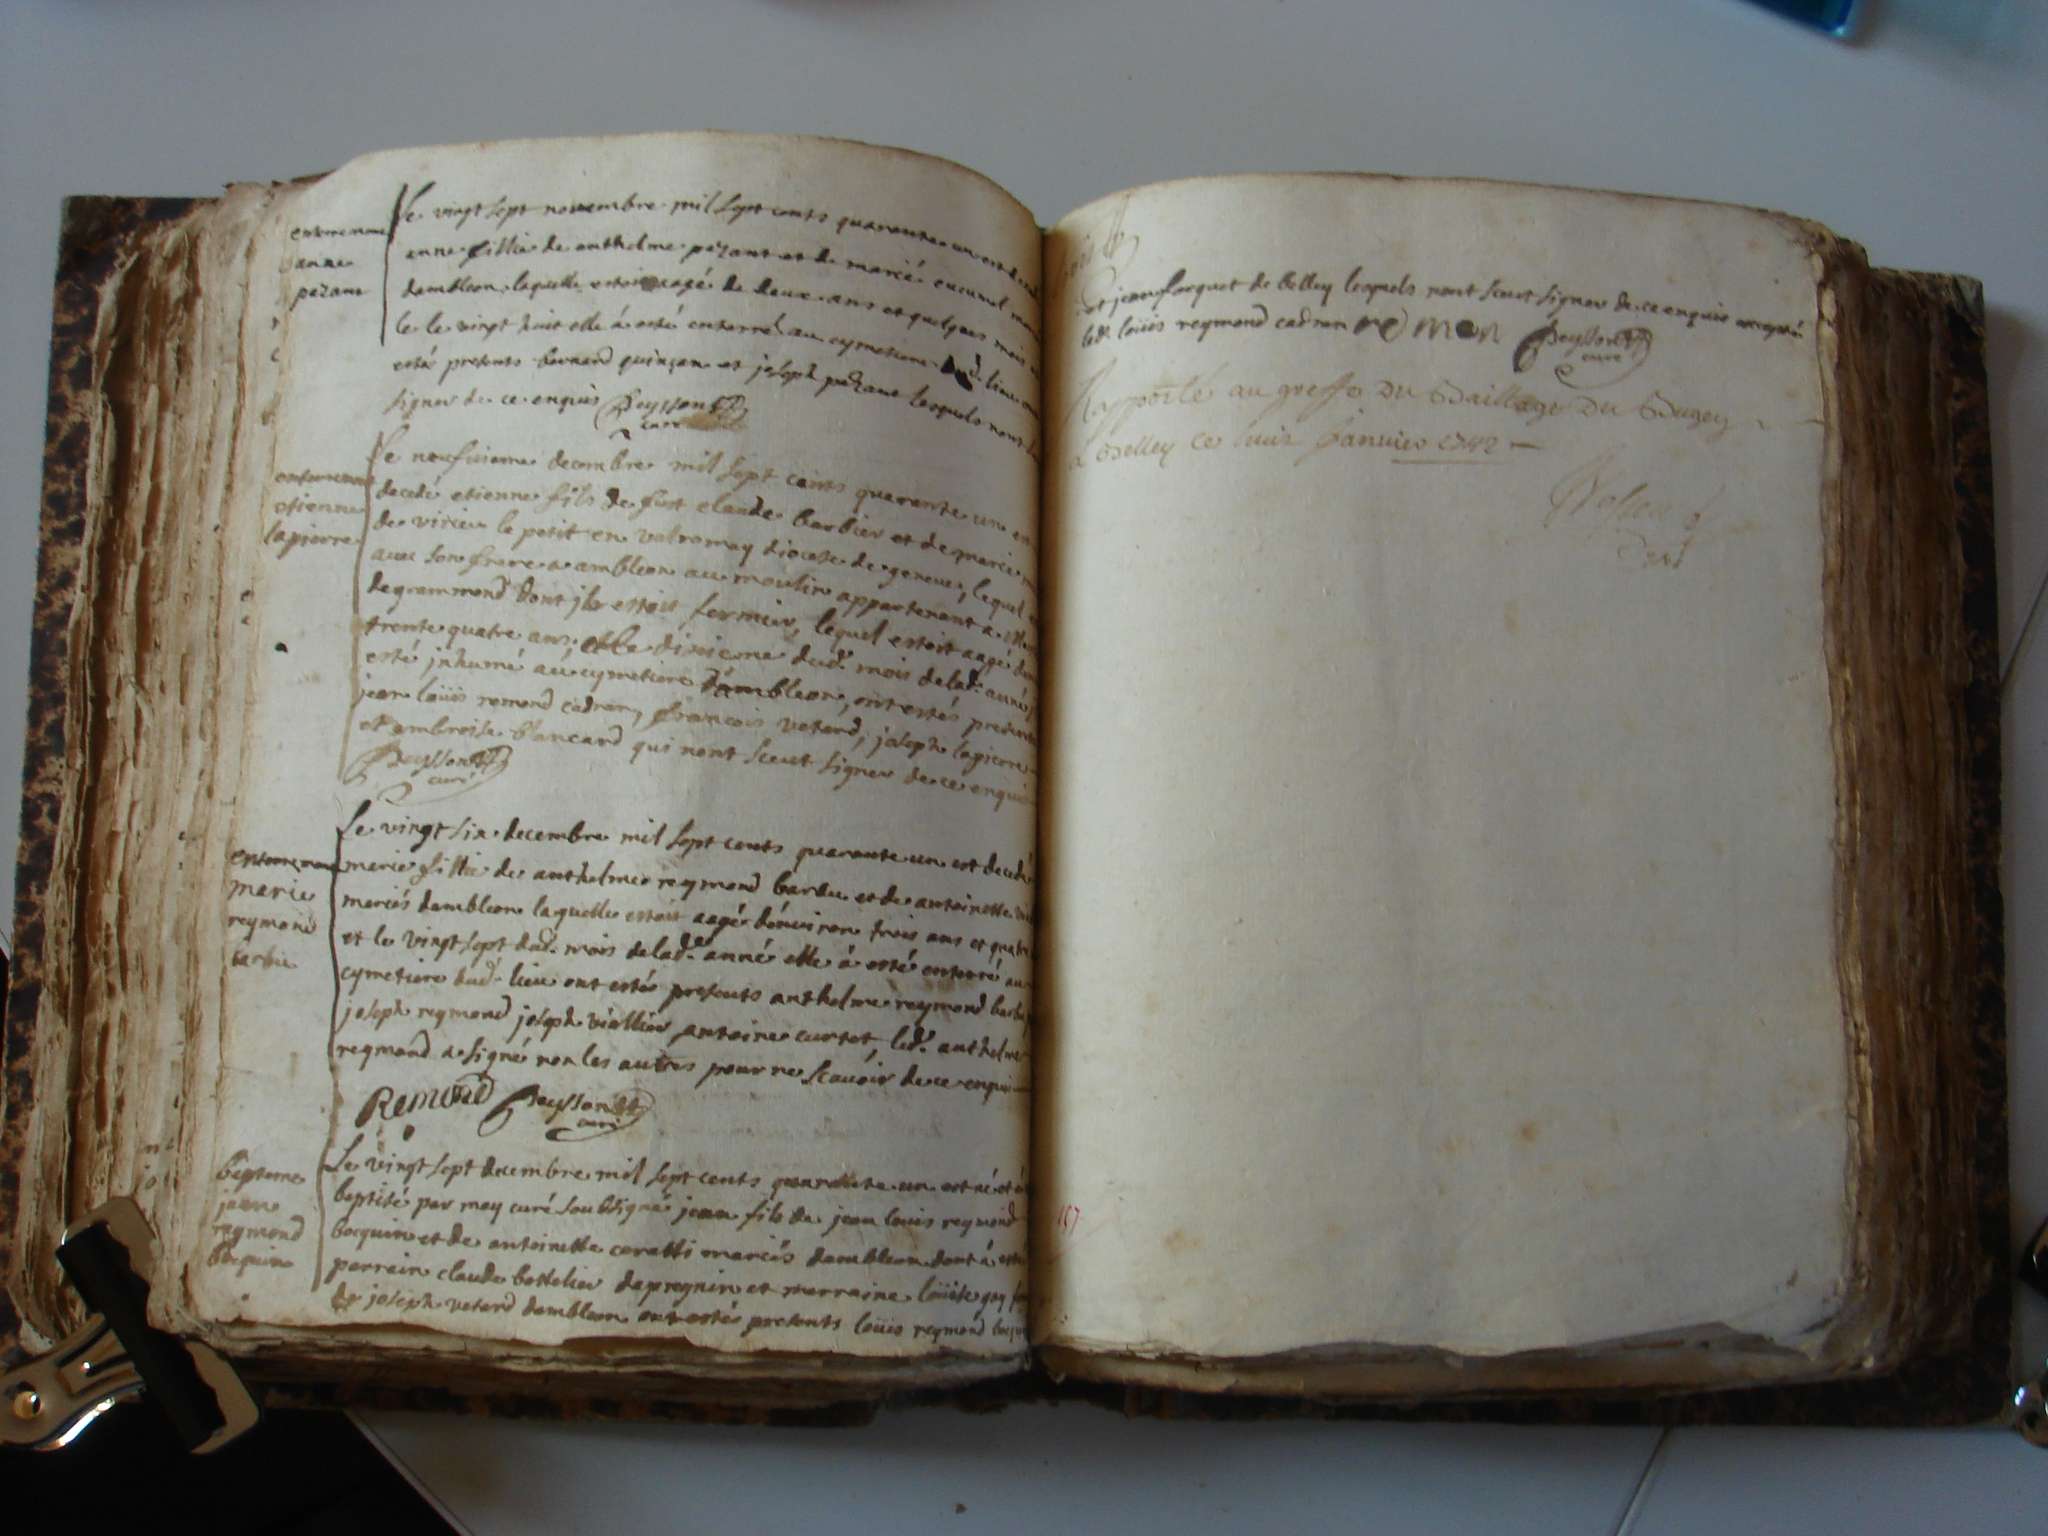 enterrement
anne
pezant
le vingt sept novembre mil sept cents quarante un est
anne fillie de anthelme pezant et de
dambleon laquelle estoit aagé de deux ans et quelques mois
le le vingt huit elle á esté enterré au cymetiere dud. lieu ont
estés presents bernard quinçon et joseph pezant lesquels nont
signer de ce enquis Peysson
curé
enterrement
etienne
lapierre
le neufvieme decembre mil sept cents quarante un est
decedé etienne fils de fust claude barbier et de marie
de virieu le petit en valromay diocese de geneve, lequel
avec son frere a ambleon au moulin appartenant a
degrammond dont jls estoit fermier, lequel estoit aagé
trente quatre ans, et le dixieme dud. mois de lad. année
esté jnhumé au cymetiere dambleon, ont estés presents
jean loüis remond cadran, françois vetard, joseph lapierre
et ambroise blancard qui nont sceut signer de ce enquis
Peysson
curé
enterrement
marie
reymond
barbu
Le vingt six decembre mil sept cents quarante un est decedé
marie fillie de anthelme reymond barbu et de antoinette
mariés dambleon laquelle estoit aagé denviron trois ans et quatre
et le vingt sept dud. mois de lad. anné elle á esté enterré au
cymetiere dud. lieu ont estés presents anthelme reymond barbu
joseph reymond joseph viallier antoine curtet, led. anthelme
reymond a signé non les autres pour ne scavoir de ce enquis
Remond Peysson
curé
bapteme
jean
reymond
bocquin
Le vingt sept decembre mil sept cents quarante un est né et
baptisé par moy curé soubsigné jean fils de jean louis reymond
bocquin et de antoinette coratti mariés dambleon dont á esté
parrain claude bottelier de pregnin et marraine loüise goy
de joseph vetard dambleon ont estés presents loüis reymond
et jean forquet de belley lesquels nont sceut signer de ce enquis excepté
led. loüis reymond cadran remon Peysson
curé
Rapporté au greffe du Baillage du Bugey
a Belley ce huit janvier 1742
157